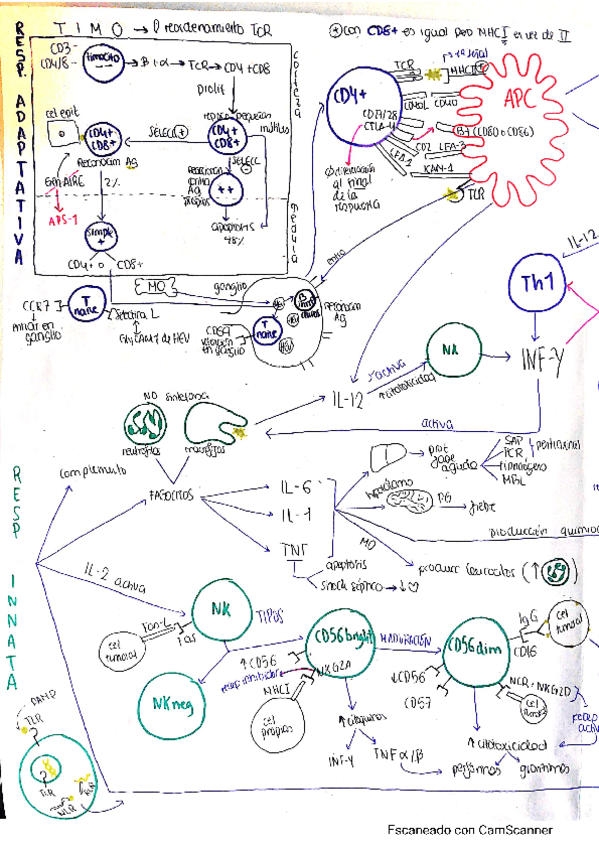 TIMO → reordenamiento TCR
⊕ con CD8+ es igual pero MHC I en vez de II
RESP. ADAPTATIVA
CD3-
CD4/8-
timocito
B + α → TCR → CD4+CD8
prolif
corteza
cel epit
CD4+
CD8+
SELECC +
CD4+
CD8+
inútiles
Reconocen Ag
Gen AIRE
APS-1
2%
SELECC -
reaccionan
contra
Ag
propios
++
apoptosis
médula
simple
+
CD4+ o CD8+
CD4+
TCR
MHC II
CD40L
CD40
CD27/28
CTLA-4
B7 (CD80 o CD86)
CD2
LFA-3
LFA-1
ICAM-1
TCR
APC
al final
de la
respuesta
MO
ganglio
CCR7
T
naive
Selectina L
GlyCAM-1 de HEV
anclar en
ganglio
CD69
en ganglio
T
naive
HEV
reconocen
Ag
IL-12
Th1
INF-γ
activa
NK
↑citotoxicidad
IL-12
activa
NO
neutrófilos
macrófagos
RESP INNATA
complemento
FAGOCITOS
IL-6
IL-1
TNF
prot
fase
aguda
SAP
PCR
pentraxinas
fibrinógeno
MBL
hipotálamo
PG
fiebre
MO
producción
producir leucocitos (↑
apoptosis
shock séptico
IL-2 activa
NK
TIPOS
Fas-L
Fas
cel
tumoral
NKneg
CD56bright
MADURACIÓN
CD56dim
↑CD56
NKG2A
MHCI
cel
propias
↓CD56
CD57
IgG
CD16
cel
tumoral
NCR, NKG2D
↑citoquinas
INF-γ
TNF α/β
↑citotoxicidad
perforinas
granzimas
recep
PAMP
TLR
TLR
NLR
Escaneado con CamScanner